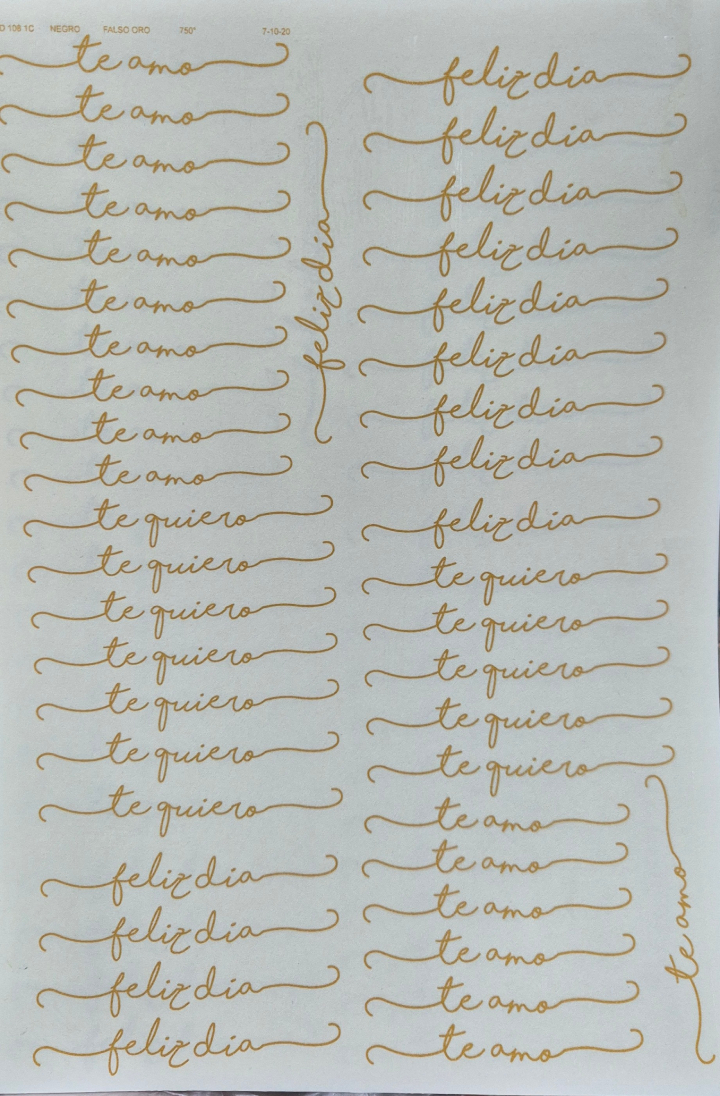 D 108 1C NEGRO FALSO ORO 750° 7-10-20
te amo
te amo
te amo
te amo
te amo
te amo
te amo
te amo
te amo
te amo
te quiero
te quiero
te quiero
te quiero
te quiero
te quiero
te quiero
feliz dia
feliz dia
feliz dia
feliz dia
feliz dia
feliz dia
feliz dia
feliz dia
feliz dia
feliz dia
feliz dia
feliz dia
feliz dia
feliz dia
te quiero
te quiero
te quiero
te quiero
te quiero
te amo
te amo
te amo
te amo
te amo
te amo
te amo